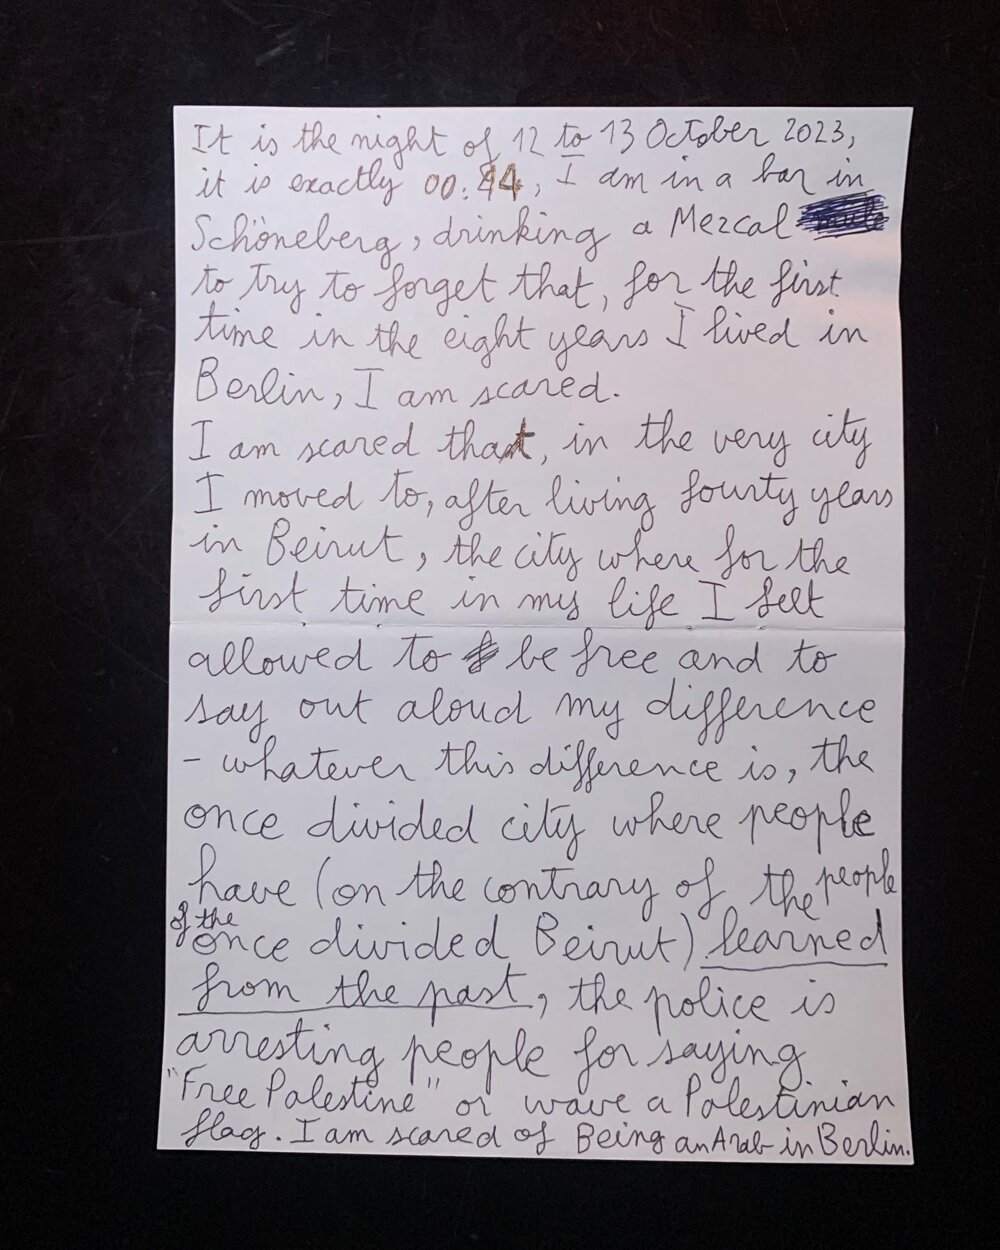 It is the night of 12 to 13 October 2023,
it is exactly 00:44, I am in a bar in
Schöneberg, drinking a Mezcal
to try to forget that, for the first
time in the eight years I lived in
Berlin, I am scared.
I am scared that, in the very city
I moved to, after living fourty years
in Beirut, the city where for the
first time in my life I felt
allowed to be free and to
say out aloud my difference
- whatever this difference is, the
once divided city where people
have (on the contrary of the people
of the once divided Beirut) learned
from the past, the police is
arresting people for saying
"Free Palestine" or wave a Palestinian
flag. I am scared of Being an Arab in Berlin.